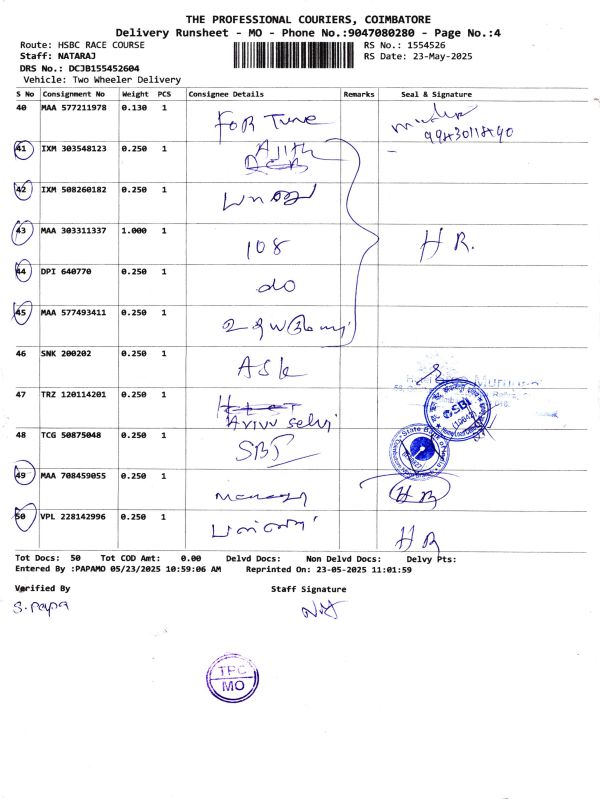 THE PROFESSIONAL COURIERS, COIMBATORE
Delivery Runsheet - MO - Phone No.:9047080280 - Page No.:4
Route: HSBC RACE COURSE
RS No.: 1554526
Staff: NATARAJ
RS Date: 23-May-2025
DRS No.: DCJB155452604
Vehicle: Two Wheeler Delivery
S No Consignment No Weight PCS Consignee Details Remarks Seal & Signature
40 MAA 577211978 0.130 1 FOR Tune
41 IXM 303548123 0.250 1 Ajith
42 IXM 508260182 0.250 1
43 MAA 303311337 1.000 1 108 HR.
44 DPI 640770 0.250 1 do
45 MAA 577493411 0.250 1
46 SNK 200202 0.250 1 ASK
47 TRZ 120114201 0.250 1 Arivu selvi
48 TCG 50875048 0.250 1 SBI
49 MAA 708459055 0.250 1 HR
50 VPL 228142996 0.250 1 HR
SBI
State Bank of India
Tot Docs: 50 Tot COD Amt: 0.00 Delvd Docs: Non Delvd Docs: Delvy Pts:
Entered By :PAPAMO 05/23/2025 10:59:06 AM Reprinted On: 23-05-2025 11:01:59
Verified By
Staff Signature
S. Papa
TPC
MO